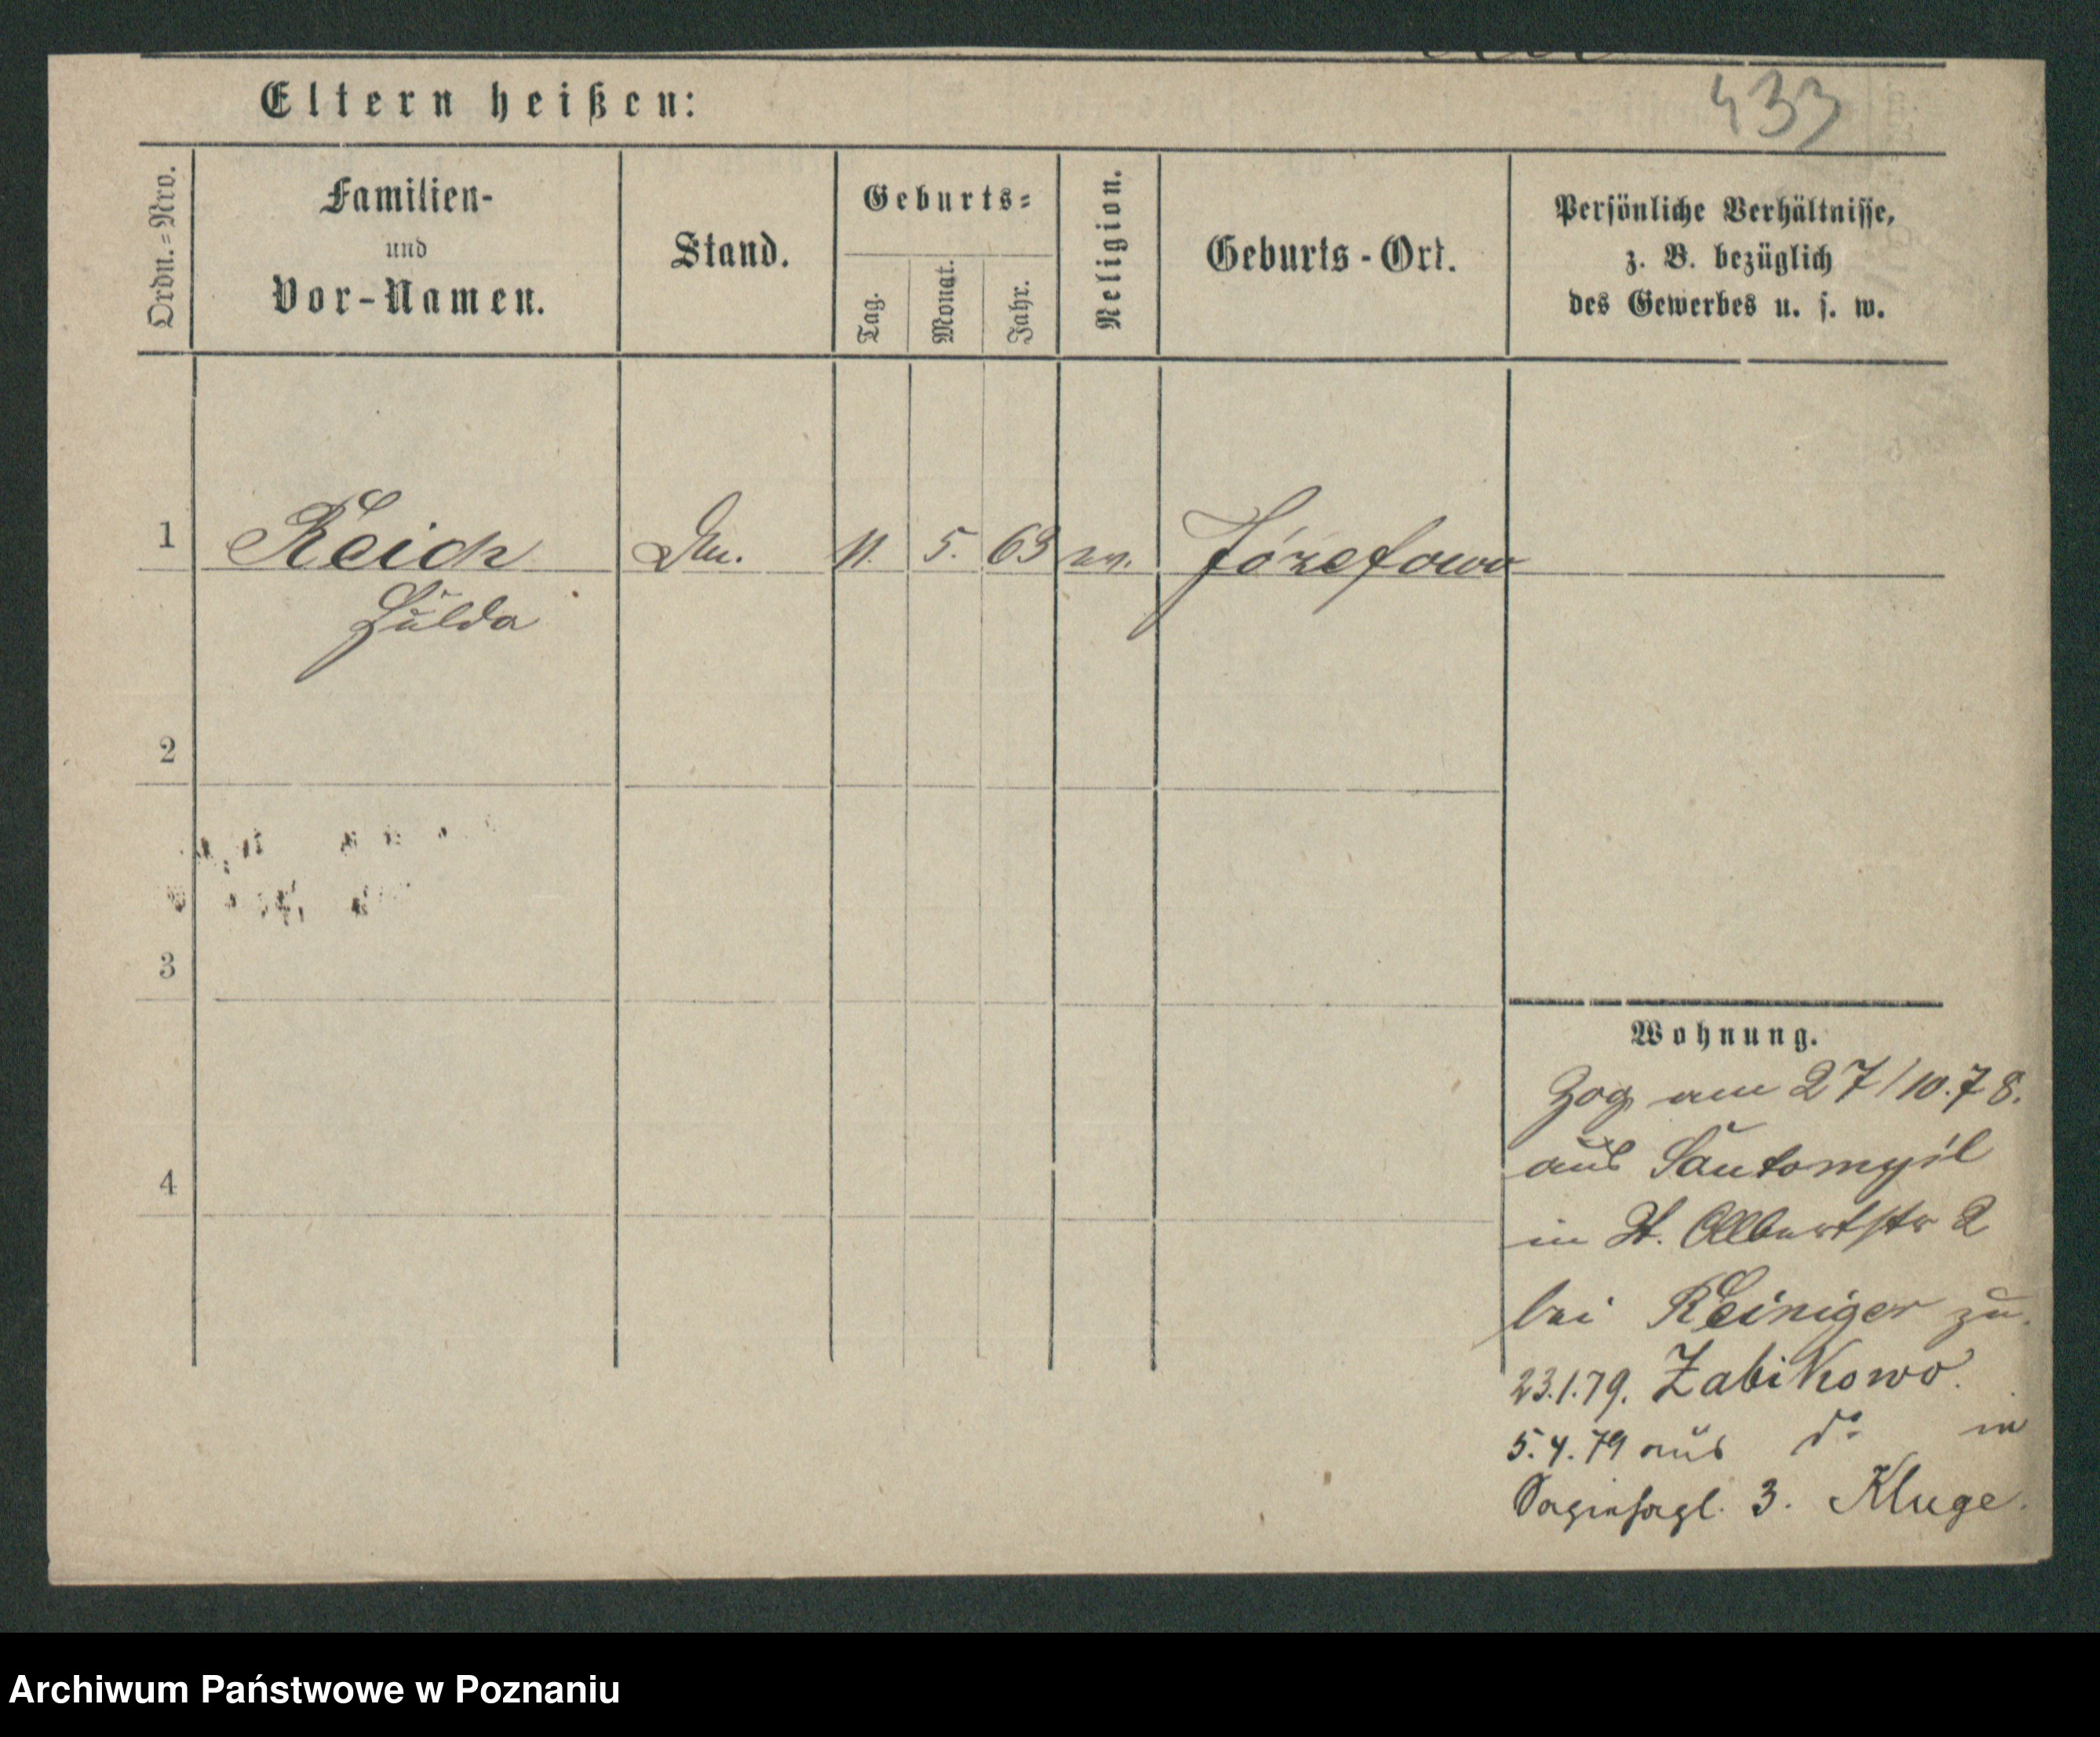 433
Eltern heißen:
Ordn.=Nro.
Familien-
und
Vor-Namen.
Stand.
Geburts=
Tag.
Monat.
Jahr.
Religion.
Geburts-Ort.
Persönliche Verhältnisse,
z. B. bezüglich
des Gewerbes u. s. w.
1 Reich 11. 5. 63 ev. Józefowo
Hulda
2
3
4
Wohnung.
Zog am 27/10.78.
aus Santomysl
in St. Albertstr 2
bei Reiniger zu.
23.1.79. Zabikowo.
5.4.79 aus do in
3. Kluge.
Archiwum Państwowe w Poznaniu